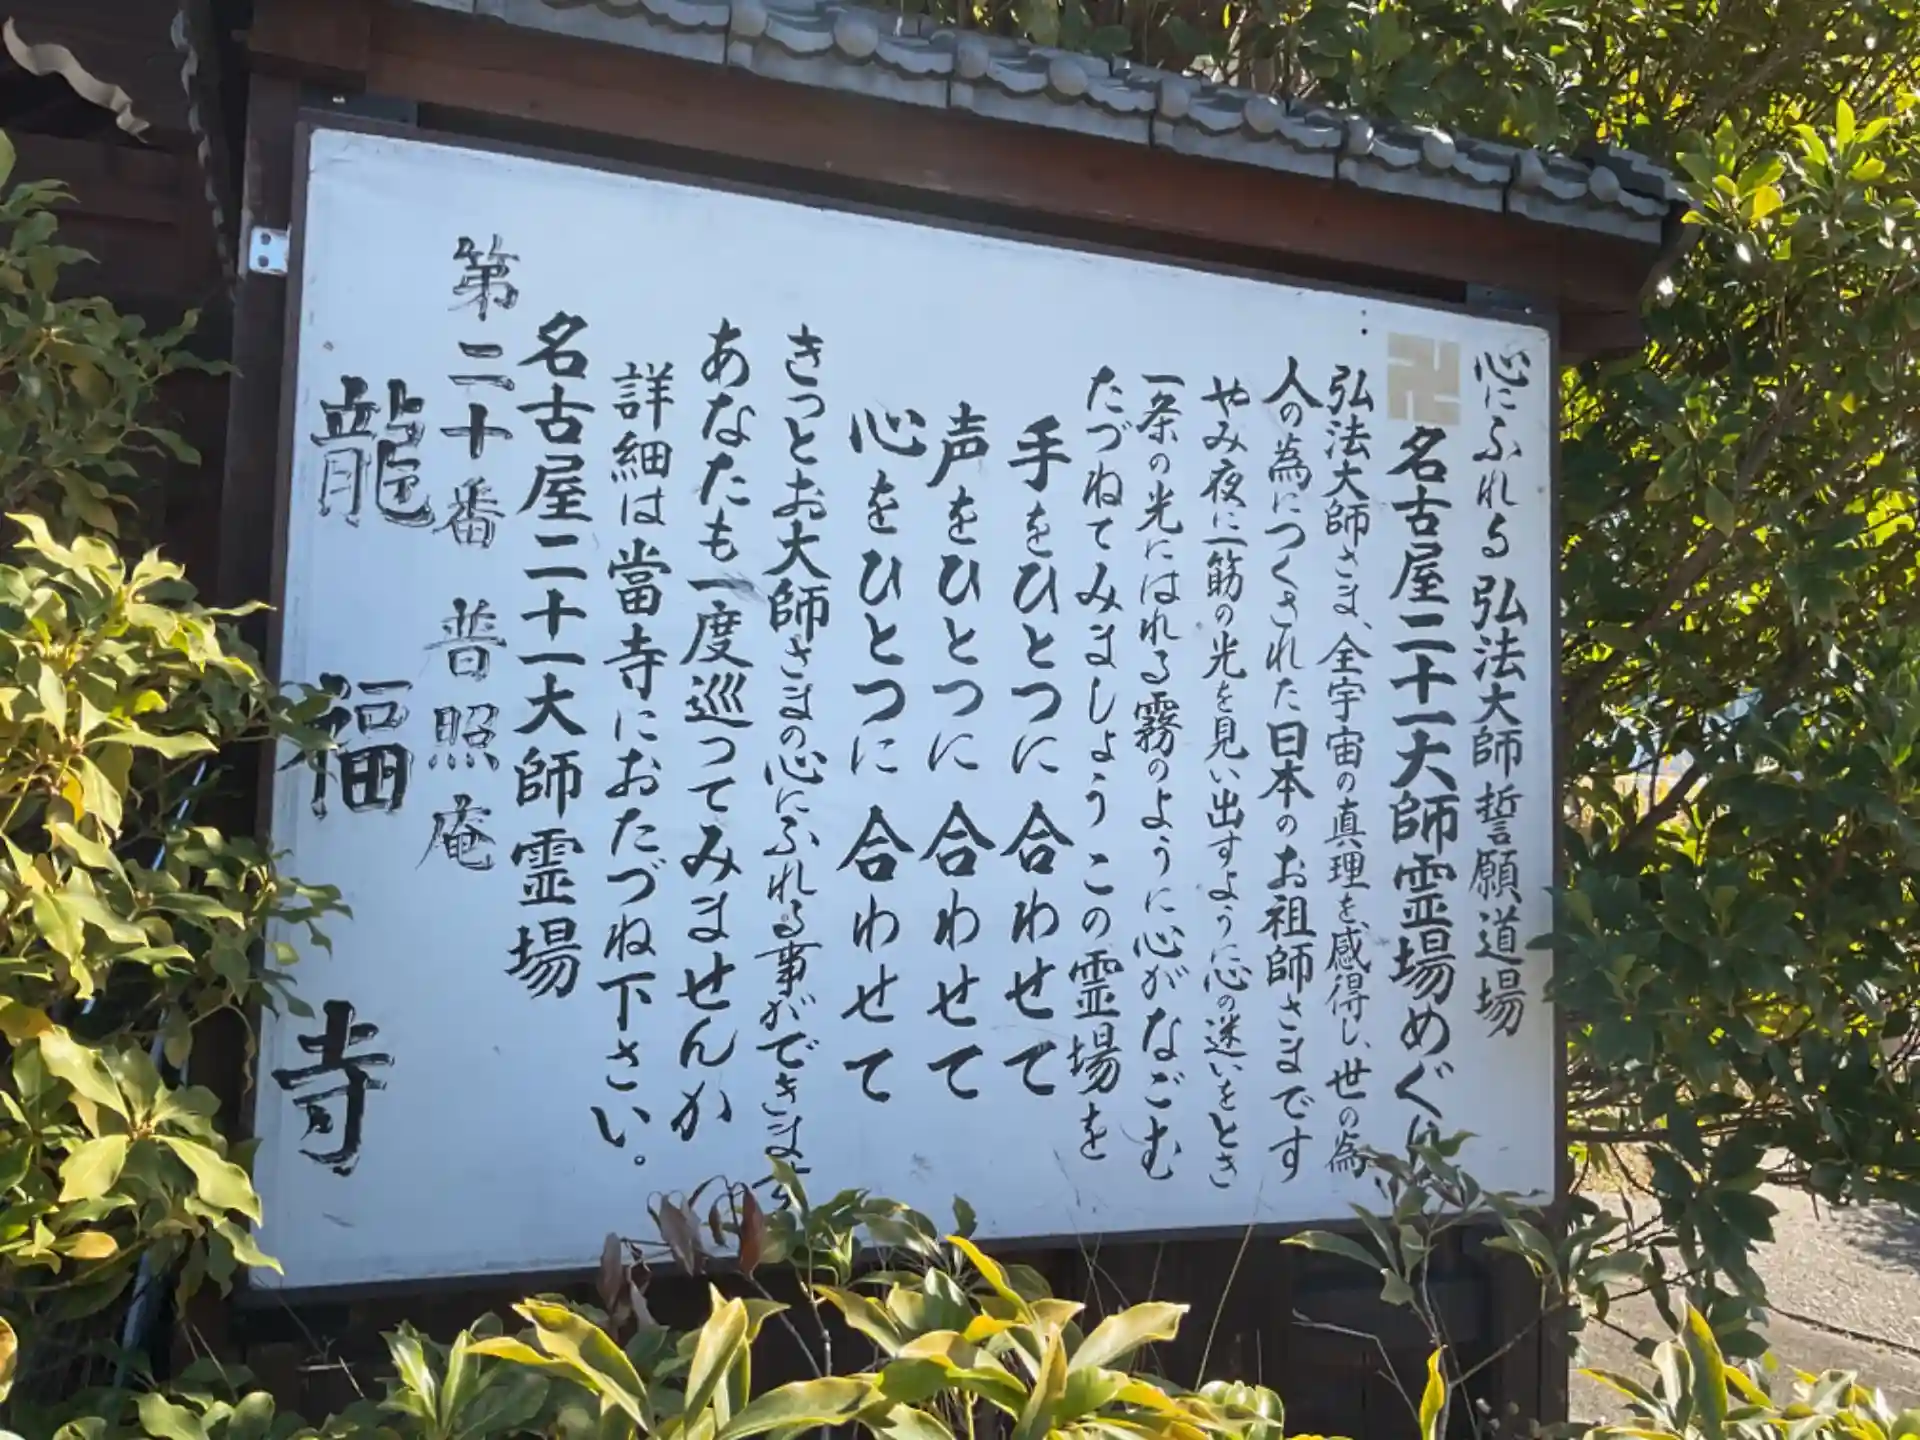 心にふれる 弘法大師誓願道場
卍 名古屋二十一大師霊場めぐり
弘法大師さま、全宇宙の真理を、感得し、世の為、
人の為につくされた日本のお祖師さまです
やみ夜に一筋の光を見い出すように心の迷いをとき
一条の光にはれる霧のように心がなごむ
たづねてみましょう この霊場を
手をひとつに 合わせて
声をひとつに 合わせて
心をひとつに 合わせて
きっとお大師さまの心にふれる事ができます
あなたも一度巡ってみませんか
詳細は當寺におたづね下さい。
名古屋二十一大師霊場
第二十番 普照庵
龍福寺